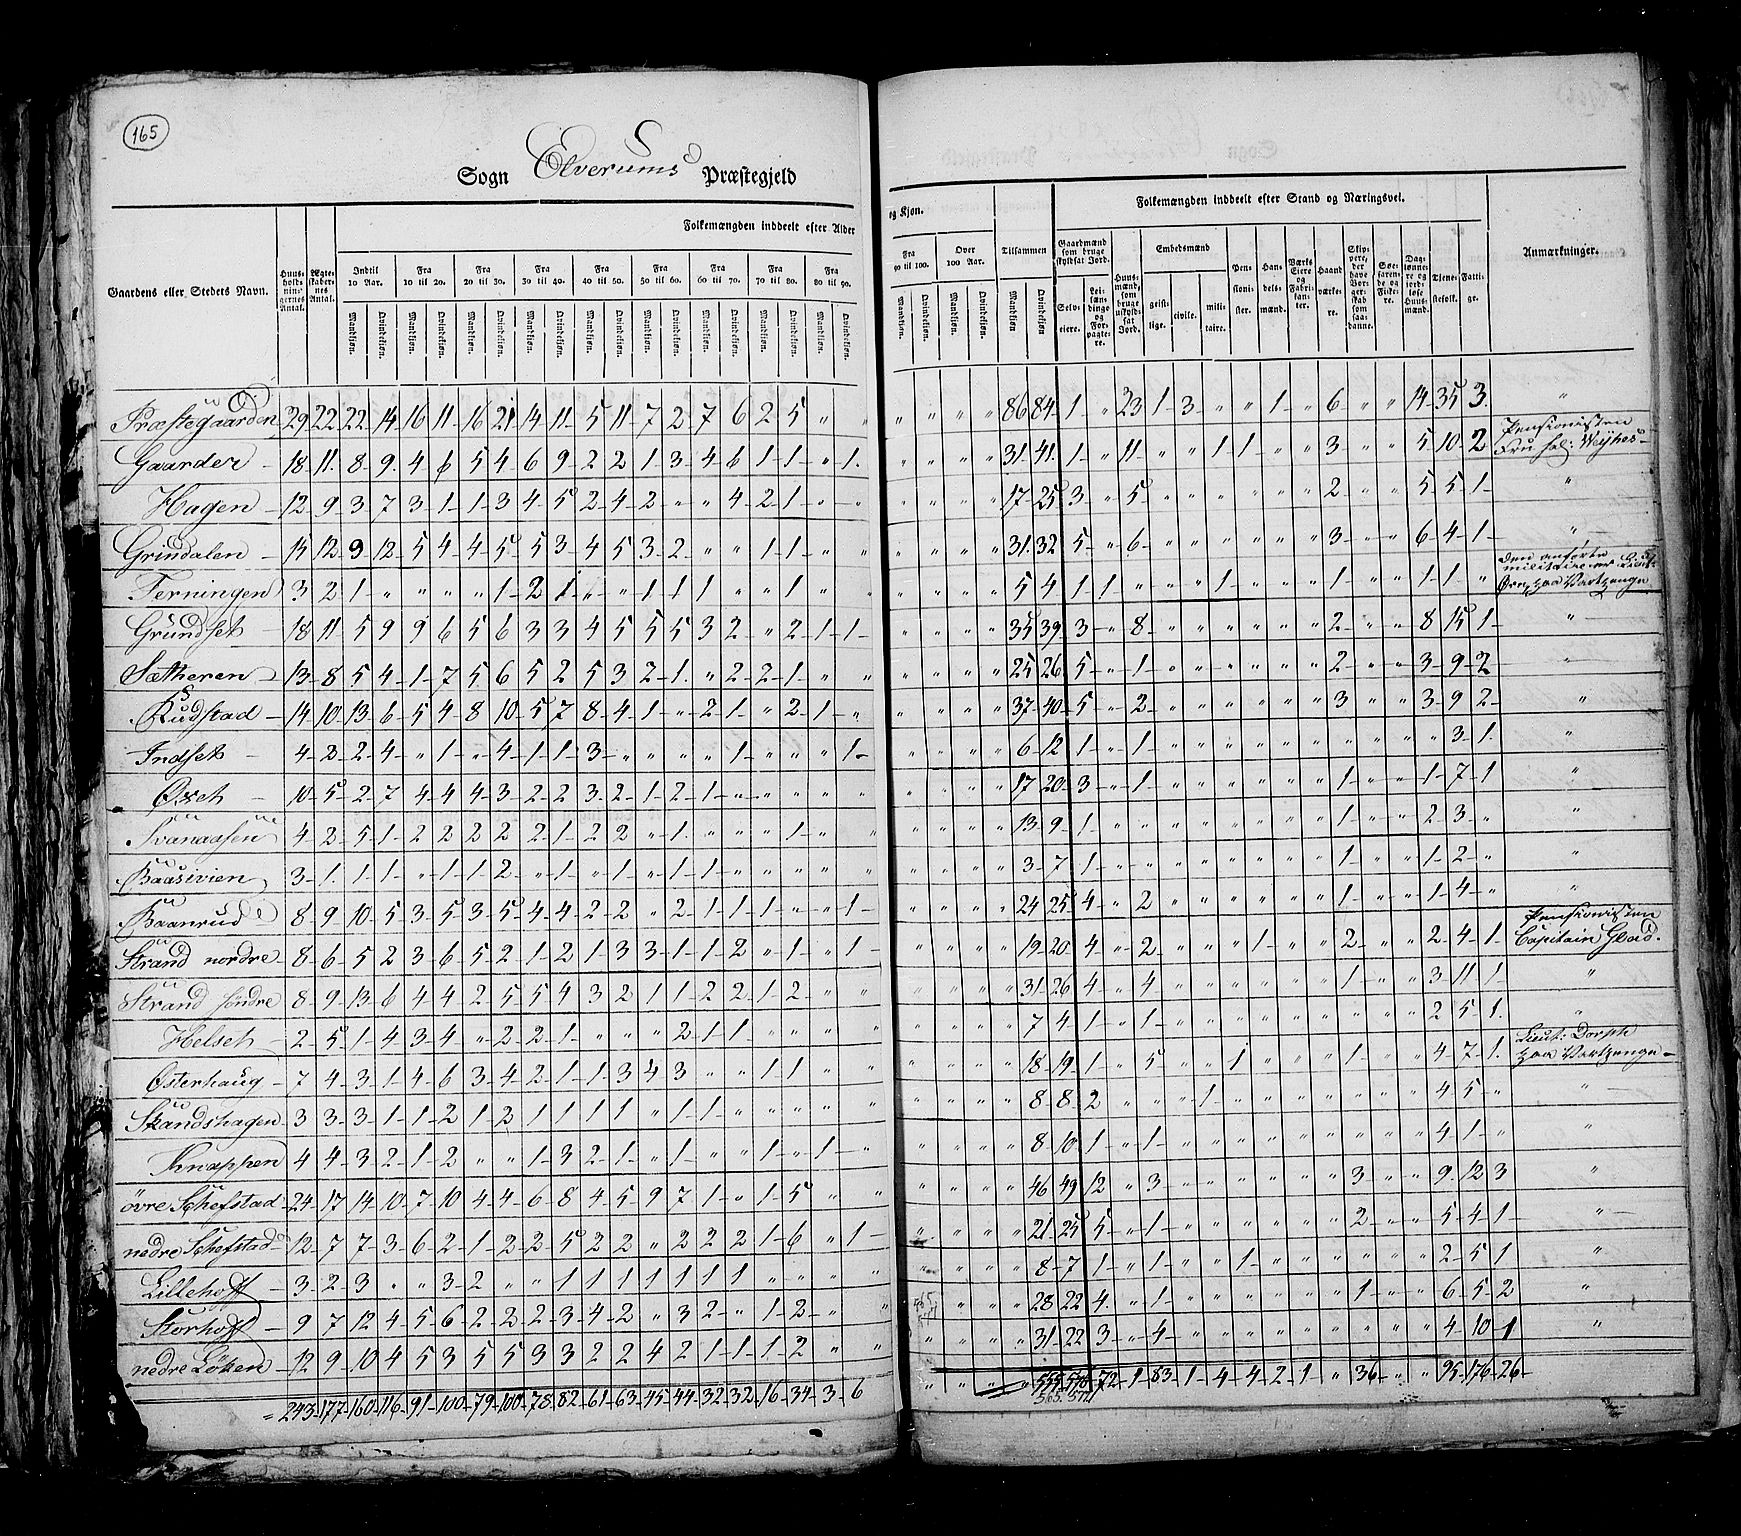 165
Sogn Elverums Præstegjeld
Folkemængden inddeelt efter Alder og Kjøn.
Folkemængden inddeelt efter Stand og Næringsvei.
Gaardens eller Stedets Navn.
Huusholdningernes Antal.
Ægteskabernes Antal.
Indtil 10 Aar.
Fra 10 til 20.
Fra 20 til 30.
Fra 30 til 40.
Fra 40 til 50.
Fra 50 til 60.
Fra 60 til 70.
Fra 70 til 80.
Fra 80 til 90.
Fra 90 til 100.
Over 100 Aar.
Tilsammen
Mandkjøn. Qvindekjøn.
Gaardmænd som bruge skyldsat Jord.
Selveiere.
Leilændinge og Forpagtere.
Huusmænd, som bruge uskyldsat Jord.
Embedsmænd
geistlige. civile. militaire.
Pensionister.
Handelsmænd.
Værks Eiere og Fabrikanter.
Haandværkere.
Skippere, der have Borgerskab som saadanne.
Søefarende og Fiskere.
Daglønnere og jordløse Huusmænd.
Tjenestefolk.
Fattige.
Anmærkninger.
Præstegaarden 29 22 22 14 16 11 16 21 14 11 5 11 7 2 7 6 2 5 " " " " " " 86 84 1 " 23 1 3 " " 1 " 6 " " 14 35 3 "
Gaarder 18 11 8 9 4 6 5 4 6 9 2 2 1 3 4 6 1 1 " 1 " " " " 31 41 1 " 11 " " 1 1 " " 3 " " 5 10 2 Pensionisten Fru sal: Weyhes
Hagen 12 9 3 7 3 1 1 3 4 5 2 4 2 " " 4 2 1 " " " " " " 17 25 3 " 5 " " " " " " 2 " " 5 5 1 "
Grindalen 15 12 9 12 5 4 4 5 5 3 4 5 3 2 " " 1 1 " " " " " " 31 32 5 " 6 " " " " " " 3 " " 6 4 1 "
Terningen 3 2 1 " " " " 1 2 1 " " 1 1 1 " 1 " " " " " " " 5 4 1 1 " " " 1 " " " 1 " " 1 1 " Den anførte militaire er
Grundset 18 11 5 9 9 6 5 6 3 3 4 5 5 5 3 2 " 2 1 1 " " " " 35 39 3 " 8 " " " " " " 2 " " 8 15 1 "
Sætheren 13 8 5 4 1 7 5 6 5 2 5 3 2 1 " 2 2 1 " " " " " " 25 26 5 " 1 " " " " " " 2 " " 3 9 2
Rudstad 14 10 13 6 5 4 8 10 5 7 8 4 1 " 2 1 " 2 1 " " " " " 37 40 5 " 2 " " " " " " 3 " " 3 9 2 "
Indset 4 2 2 4 " 1 " 4 1 1 3 " " " " 1 " " " 1 " " " " 6 12 1 " 1 " " " " " " " " " " 3 1 "
Øxet 10 5 2 7 4 4 4 3 2 2 3 2 1 2 1 " " " " " " " " " 17 20 3 " 1 " " " " " " 1 " " 1 7 1 "
Svanaasen 4 2 5 1 2 2 2 2 2 1 2 2 " 1 " " " 1 " " " " " " 13 9 1 " " " " " " " " 1 " " 2 3 " "
Baasivien 3 1 1 1 " 1 1 2 " 1 " 1 " 1 1 " " " " " " " " " 3 7 1 " " " " " " " " 1 " " 1 2 " "
Baanrud 8 9 10 5 3 5 3 5 4 4 2 2 " 2 1 1 1 " " 1 " " " " 24 25 4 " 2 " " " " " " 1 " " 1 4 " "
Strand nordre 8 6 5 2 3 6 5 2 1 2 1 3 3 1 1 2 " 1 " 1 " " " " 19 20 4 " 2 " " " 1 " " 2 " " 2 4 1 Pensionisten Capitain Glad.
Strand söndre 8 9 13 6 4 4 2 5 5 4 3 2 1 1 2 2 1 2 " " " " " " 31 26 4 " 4 " " " " " " 1 " " 3 11 1 "
Helset 2 5 1 4 3 4 " 2 2 1 " " " 2 1 1 " " " " " " " " 7 4 1 " 1 " " " " " " " " " 2 5 1 "
Osterhaug 7 4 3 1 4 6 3 4 2 1 1 3 4 3 " " 1 1 " " " " " " 18 19 1 " 5 " " 1 " " " 1 " " 4 7 1 Lieut: Dorph paa Vartpenge
Skandshagen 3 3 3 1 1 2 1 2 1 1 1 1 " 1 1 " " " " " " " " " 8 8 2 " " " 1 " " " " " " " 4 5 " "
Knappen 4 4 3 2 1 2 " " 1 3 2 1 " 1 " " 1 " 1 " " " " " 8 10 1 " 1 " " " " " " " " " 4 1 " "
övre Schefstad 24 17 14 10 7 10 4 4 6 8 4 5 9 7 1 " 1 5 " " " " " " 46 49 12 " 3 " " " " " " 3 " " 9 12 3 "
nedre Schefstad 12 7 7 3 6 2 1 2 2 5 2 2 " 2 2 2 1 6 " 1 " " " " 21 25 5 " 1 " " " " " " 2 " " 5 4 1 "
Lillehoff 3 2 3 " " 3 2 " " 1 1 1 1 1 1 1 " " " " " " " " 8 7 1 " " " " 1 " " " " " " 2 5 1 "
Storhoff 9 7 12 4 5 6 2 2 2 3 4 2 " 3 2 " 1 2 " " " " " 28 22 4 " 1 " " " " " " 1 " " 6 5 2 "
nedre Löken 12 9 10 4 5 3 5 5 3 3 2 2 4 2 1 1 1 2 " " " " " " 31 22 3 " 4 " " " " " " " " " 4 10 1 "
= 243 177 160 116 91 100 79 100 78 82 61 63 45 44 32 32 16 34 3 6 " " " " 72 1 83 1 4 4 2 1 " 36 " " 95 176 26
565